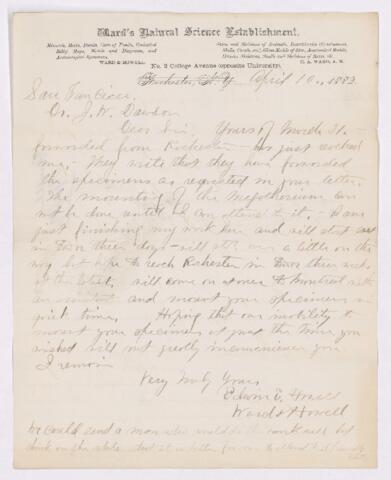 Ward's Natural Science Establishment.
Minerals, Rocks, Fossils, Casts of Fossils, Geological
Relief Maps, Models and Diagrams, and
Archæological Specimens.
WARD & HOWELL.
Skins and Skeletons of Animals, Invertebrates (Crustaceans,
Shells, Corals, etc.), Glass Models of Anatomical Models,
Human Skeletons, Skulls and Skeletons of Races, etc.
H. A. WARD, A. M.
No. 2 College Avenue opposite University.
Rochester, N. Y. April 10, 1883
San Francisco
Dr. J. W. Dawson
Dear Sir. Yours of March 31 -
forwarded from Rochester - has just reached
me. - They write that they have forwarded
the specimens as requested in your letter.
The mounting of the Megatherium can
not be done until I can attend to it. I am
just finishing my work here and will start east
in two or three days - will stop over a little on the
way but hope to reach Rochester in two or three weeks
at the latest. Will come on at once to Montreal with
an assistant and mount your specimens in
quick time. Hoping that our inability to
mount your specimens at just the time you
wished will not greatly inconvenience you
I remain
Very truly yours
Edwin E. Howell
Ward & Howell
We could send a man who would do the work well but
think on the whole that it is better for me to attend to it